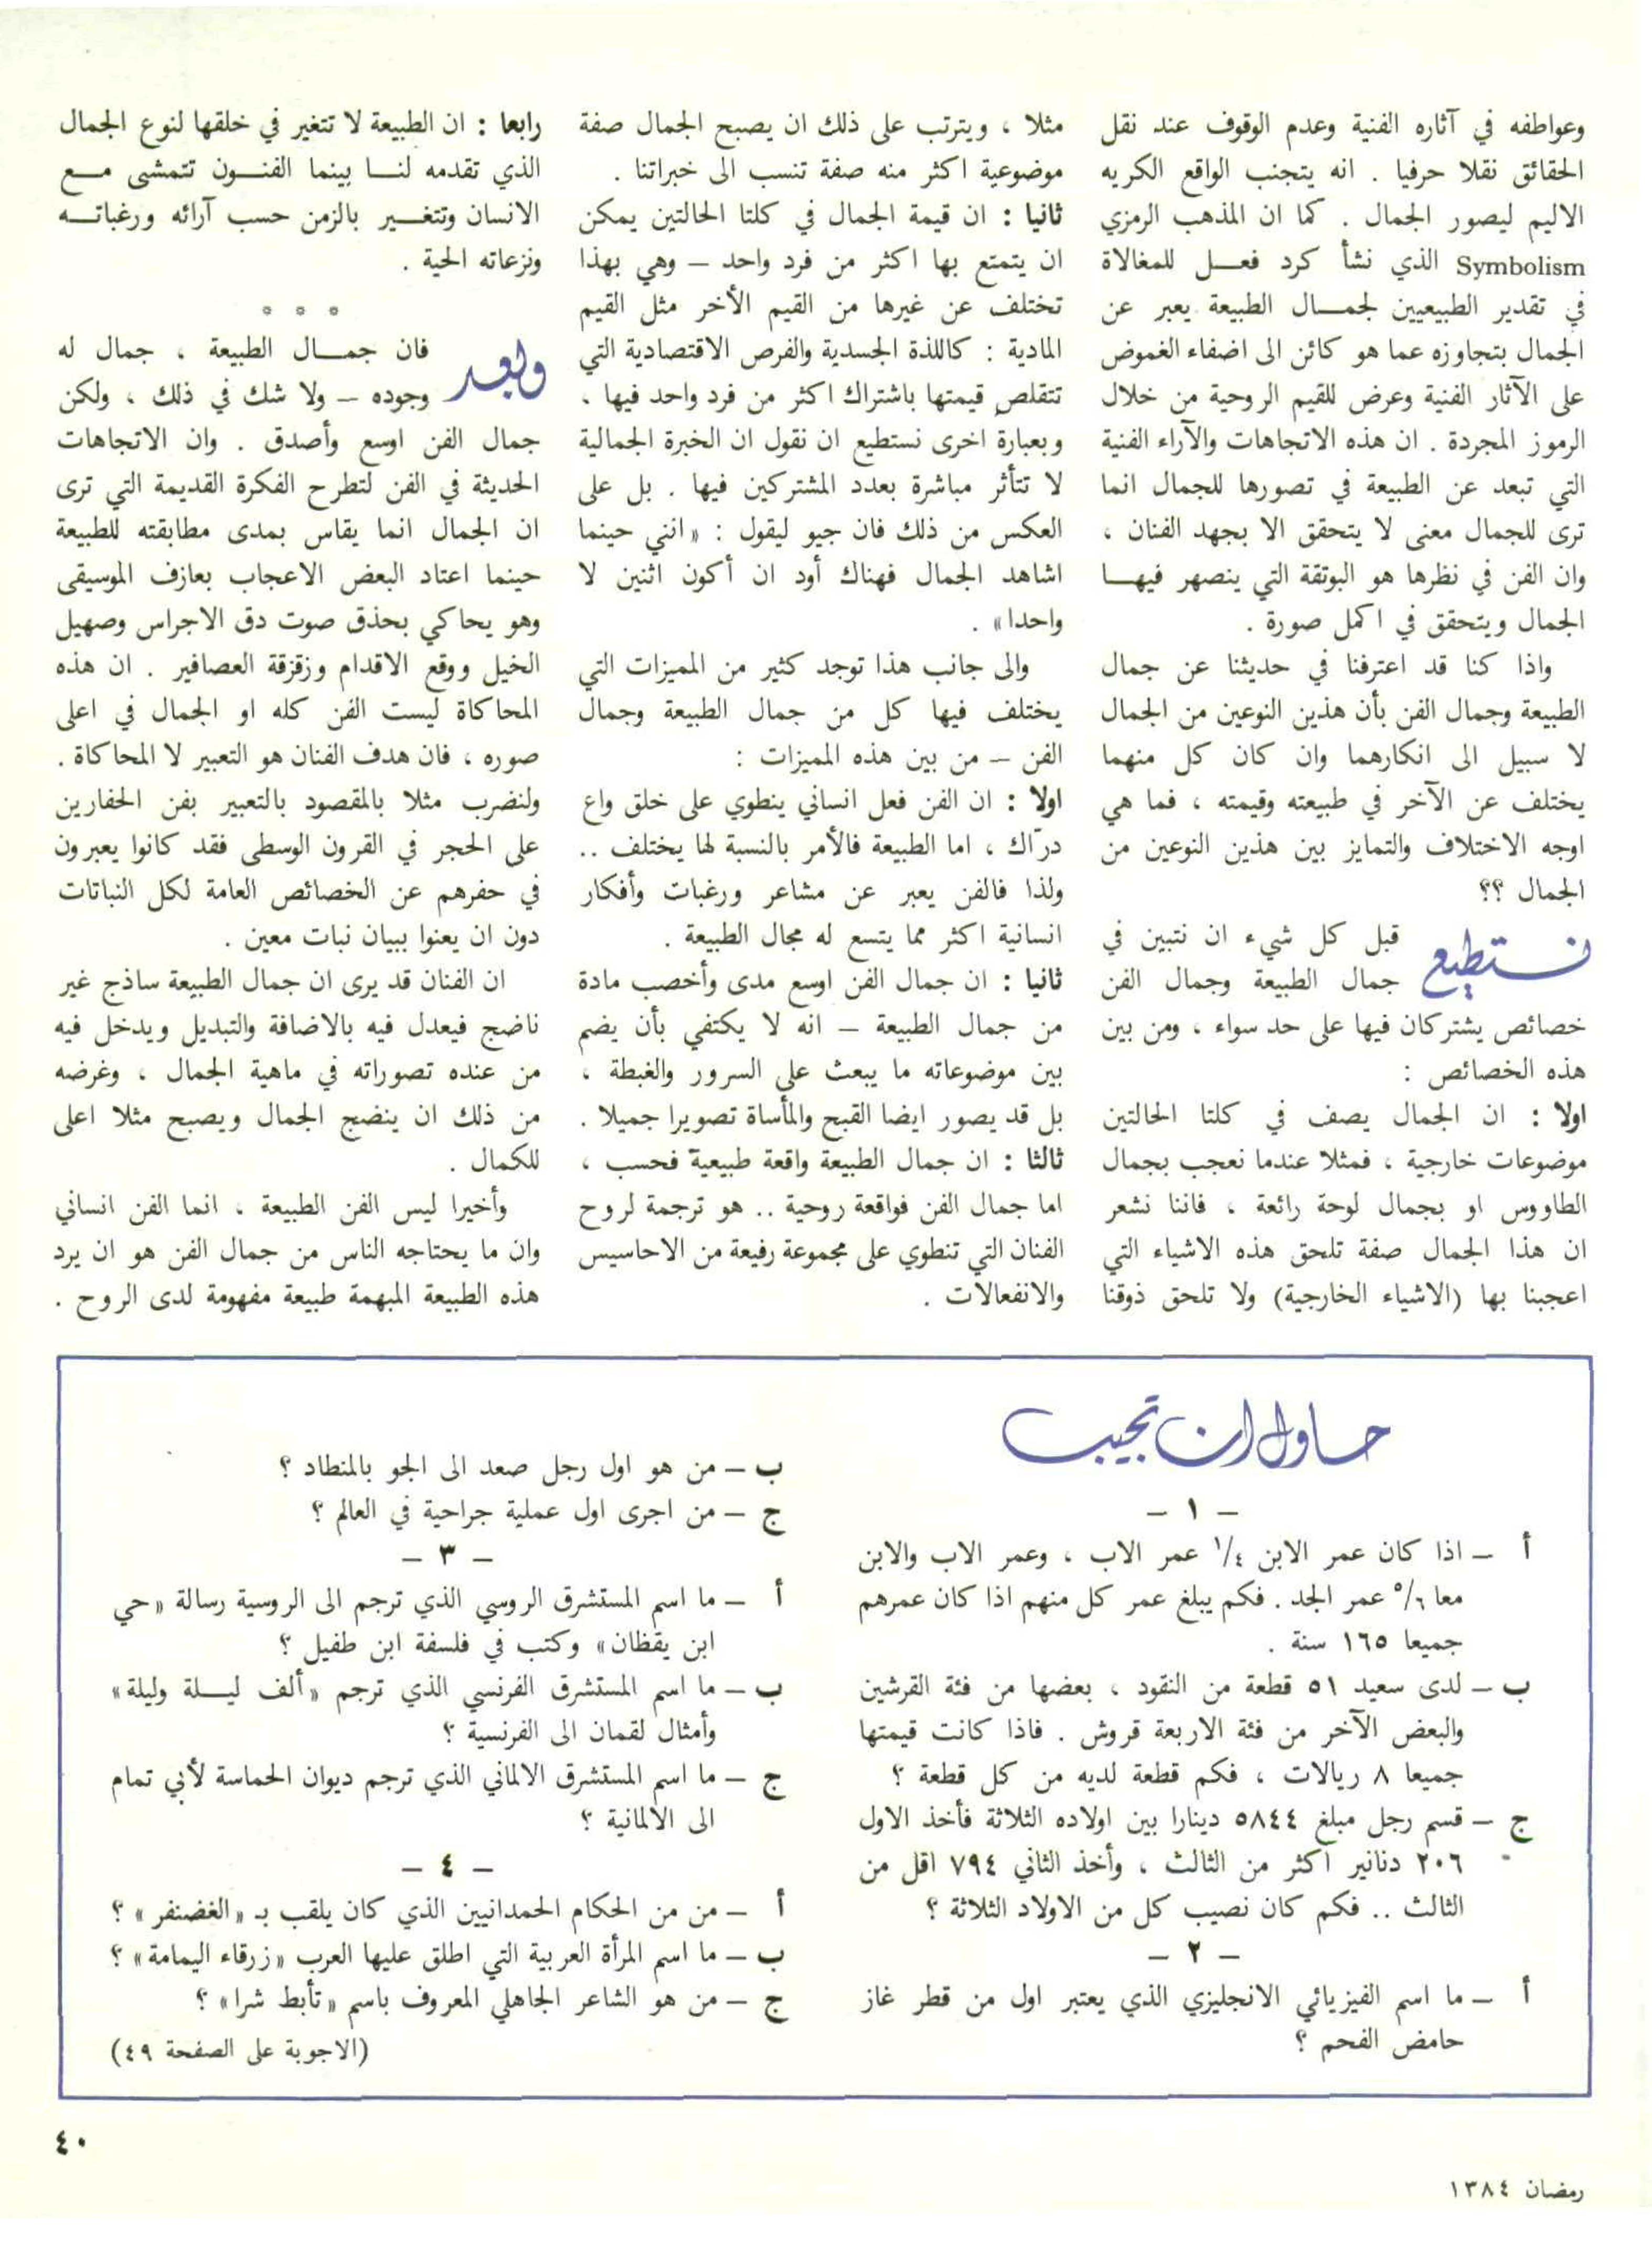 وعواطفه في آثاره الفنية وعدم الوقوف عند نقل
الحقائق نقلا حرفيا . انه يتجنب الواقع الكريه
الاليم ليصور الجمال . كما ان المذهب الرمزي
Symbolism الذي نشأ كرد فعـــل للمغالاة
في تقدير الطبيعيين لجمـــال الطبيعة يعبر عن
الجمال بتجاوزه عما هو كائن الى اضفاء الغموض
على الآثار الفنية وعرض للقيم الروحية من خلال
الرموز المجردة . ان هذه الاتجاهات والآراء الفنية
التي تبعد عن الطبيعة في تصورها للجمال انما
ترى للجمال معنى لا يتحقق الا بجهد الفنان ،
وان الفن في نظرها هو البوتقة التي ينصهر فيهـــا
الجمال ويتحقق في اكمل صورة .
واذا كنا قد اعترفنا في حديثنا عن جمال
الطبيعة وجمال الفن بأن هذين النوعين من الجمال
لا سبيل الى انكارهما وان كان كل منهما
يختلف عن الآخر في طبيعته وقيمته ، فما هي
اوجه الاختلاف والتمايز بين هذين النوعين من
الجمال ؟؟
نستطيع قبل كل شيء ان نتبين في
جمال الطبيعة وجمال الفن
خصائص يشتركان فيها على حد سواء ، ومن بين
هذه الخصائص :
اولا : ان الجمال يصف في كلتا الحالتين
موضوعات خارجية ، فمثلا عندما نعجب بجمال
الطاووس او بجمال لوحة رائعة ، فاننا نشعر
ان هذا الجمال صفة تلحق هذه الاشياء التي
اعجبنا بها (الاشياء الخارجية) ولا تلحق ذوقنا
مثلا ، ويترتب على ذلك ان يصبح الجمال صفة
موضوعية اكثر منه صفة تنسب الى خبراتنا .
ثانيا : ان قيمة الجمال في كلتا الحالتين يمكن
ان يتمتع بها اكثر من فرد واحد – وهي بهذا
تختلف عن غيرها من القيم الأخر مثل القيم
المادية : كاللذة الجسدية والفرص الاقتصادية التي
تتقلص قيمتها باشتراك اكثر من فرد واحد فيها ،
وبعبارة اخرى نستطيع ان نقول ان الخبرة الجمالية
لا تتأثر مباشرة بعدد المشتركين فيها . بل على
العكس من ذلك فان جيو ليقول : «انني حينما
اشاهد الجمال فهناك أود ان أكون اثنين لا
واحدا» .
والى جانب هذا توجد كثير من المميزات التي
يختلف فيها كل من جمال الطبيعة وجمال
الفن – من بين هذه المميزات :
اولا : ان الفن فعل انساني ينطوي على خلق واع
درّاك ، اما الطبيعة فالأمر بالنسبة لها يختلف ..
ولذا فالفن يعبر عن مشاعر ورغبات وأفكار
انسانية اكثر مما يتسع له مجال الطبيعة .
ثانيا : ان جمال الفن اوسع مدى وأخصب مادة
من جمال الطبيعة – انه لا يكتفي بأن يضم
بين موضوعاته ما يبعث على السرور والغبطة ،
بل قد يصور ايضا القبح والمأساة تصويرا جميلا .
ثالثا : ان جمال الطبيعة واقعة طبيعية فحسب ،
اما جمال الفن فواقعة روحية .. هو ترجمة لروح
الفنان التي تنطوي على مجموعة رفيعة من الاحاسيس
والانفعالات .
رابعا : ان الطبيعة لا تتغير في خلقها لنوع الجمال
الذي تقدمه لنـــا بينما الفنـــون تتمشى مـــع
الانسان وتتغـــير بالزمن حسب آرائه ورغباتـــه
ونزعاته الحية .
* * *
وبعد فان جمـــال الطبيعة ، جمال له
وجوده – ولا شك في ذلك ، ولكن
جمال الفن اوسع وأصدق . وان الاتجاهات
الحديثة في الفن لتطرح الفكرة القديمة التي ترى
ان الجمال انما يقاس بمدى مطابقته للطبيعة
حينما اعتاد البعض الاعجاب بعازف الموسيقى
وهو يحاكي بحذق صوت دق الاجراس وصهيل
الخيل ووقع الاقدام وزقزقة العصافير . ان هذه
المحاكاة ليست الفن كله او الجمال في اعلى
صوره ، فان هدف الفنان هو التعبير لا المحاكاة .
ولنضرب مثلا بالمقصود بالتعبير بفن الحفارين
على الحجر في القرون الوسطى فقد كانوا يعبرون
في حفرهم عن الخصائص العامة لكل النباتات
دون ان يعنوا ببيان نبات معين .
ان الفنان قد يرى ان جمال الطبيعة ساذج غير
ناضج فيعدل فيه بالاضافة والتبديل ويدخل فيه
من عنده تصوراته في ماهية الجمال ، وغرضه
من ذلك ان ينضج الجمال ويصبح مثلا اعلى
للكمال .
وأخيرا ليس الفن الطبيعة ، انما الفن انساني
وان ما يحتاجه الناس من جمال الفن هو ان يرد
هذه الطبيعة المبهمة طبيعة مفهومة لدى الروح .
حاول ان تجيب
– ١ –
أ – اذا كان عمر الابن ١/٤ عمر الاب ، وعمر الاب والابن
معا ٥/٦ عمر الجد . فكم يبلغ عمر كل منهم اذا كان عمرهم
جميعا ١٦٥ سنة .
ب – لدى سعيد ٥١ قطعة من النقود ، بعضها من فئة القرشين
والبعض الآخر من فئة الاربعة قروش . فاذا كانت قيمتها
جميعا ٨ ريالات ، فكم قطعة لديه من كل قطعة ؟
ج – قسم رجل مبلغ ٥٨٤٤ دينارا بين اولاده الثلاثة فأخذ الاول
٢٠٦ دنانير اكثر من الثالث ، وأخذ الثاني ٧٩٤ اقل من
الثالث .. فكم كان نصيب كل من الاولاد الثلاثة ؟
– ٢ –
أ – ما اسم الفيزيائي الانجليزي الذي يعتبر اول من قطر غاز
حامض الفحم ؟
ب – من هو اول رجل صعد الى الجو بالمنطاد ؟
ج – من اجرى اول عملية جراحية في العالم ؟
– ٣ –
أ – ما اسم المستشرق الروسي الذي ترجم الى الروسية رسالة «حي
ابن يقظان» وكتب في فلسفة ابن طفيل ؟
ب – ما اسم المستشرق الفرنسي الذي ترجم «ألف ليـــلة وليلة»
وأمثال لقمان الى الفرنسية ؟
ج – ما اسم المستشرق الالماني الذي ترجم ديوان الحماسة لأبي تمام
الى الالمانية ؟
– ٤ –
أ – من من الحكام الحمدانيين الذي كان يلقب بـ «الغضنفر» ؟
ب – ما اسم المرأة العربية التي اطلق عليها العرب «زرقاء اليمامة» ؟
ج – من هو الشاعر الجاهلي المعروف باسم «تأبط شرا» ؟
(الاجوبة على الصفحة ٤٩)
٤٠
رمضان ١٣٨٤